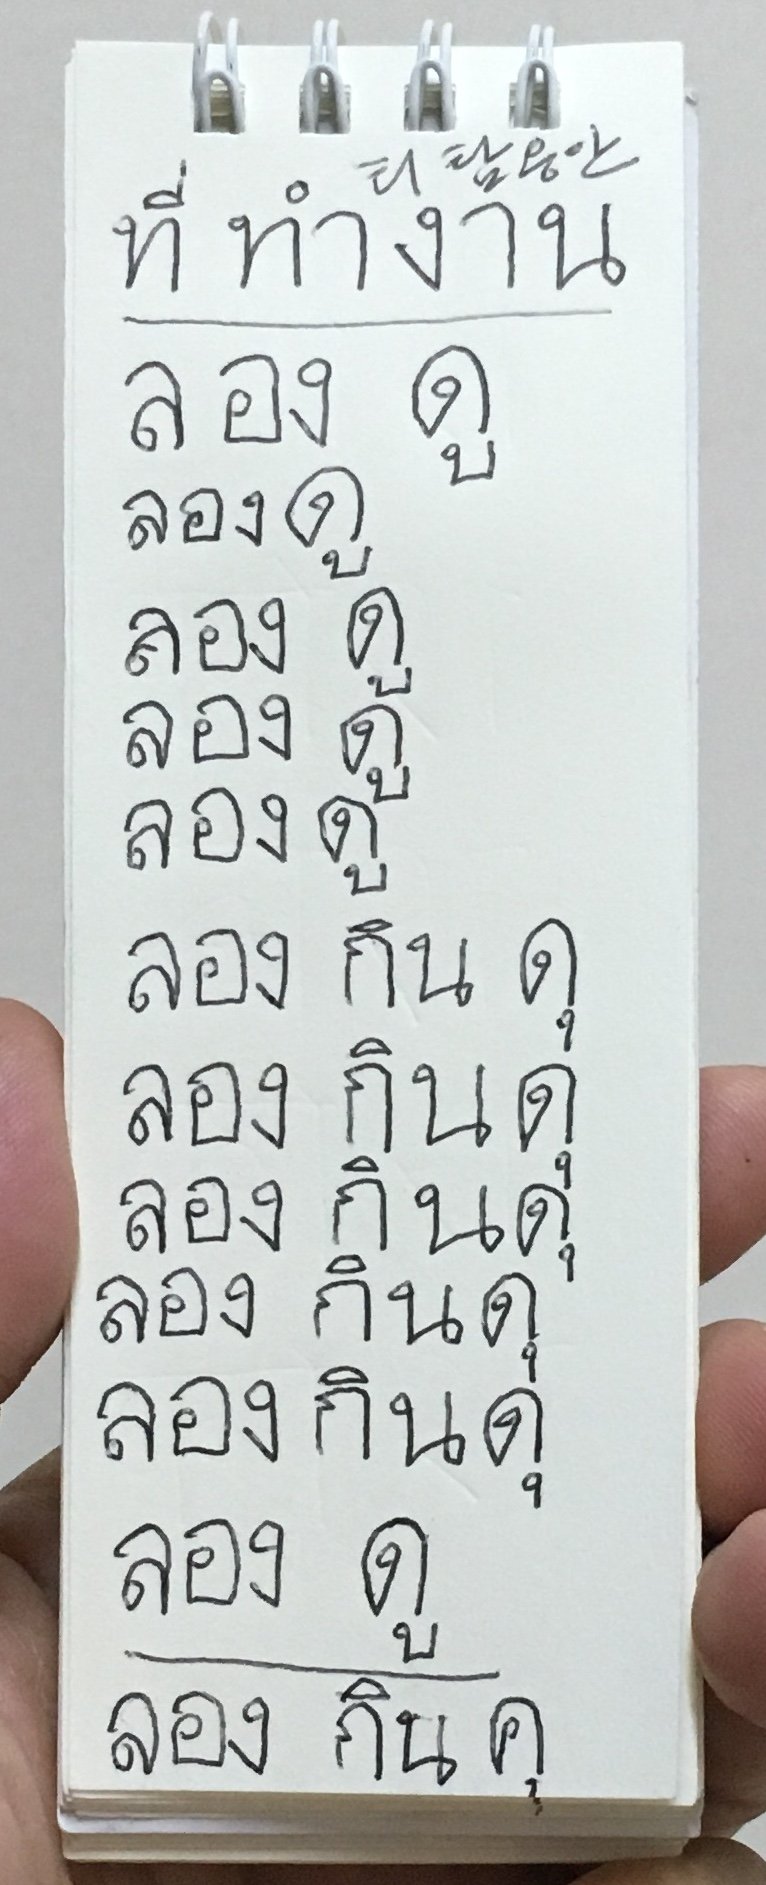 티 탐응안
ที่ ทำงาน
ลอง ดู
ลองดู
ลอง ดู
ลอง ดู
ลอง ดู
ลอง กิน ดุ
ลอง กินดุ
ลอง กินดุ
ลอง กินดุ
ลอง กินดุ
ลอง ดู
ลอง กิน คุ